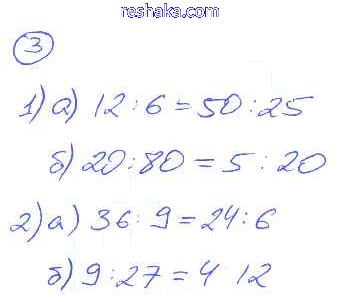 reshaka.com
3
1) а) 12 : 6 = 50 : 25
б) 20 : 80 = 5 : 20
2) а) 36 : 9 = 24 : 6
б) 9 : 27 = 4 12